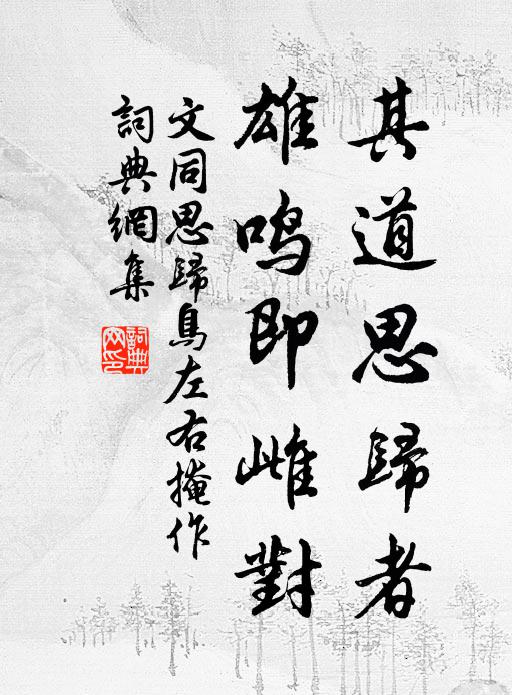 其道思歸者
雄鳴即雌對
文同思歸鳥左右掩作
詞典網集
詞典網印